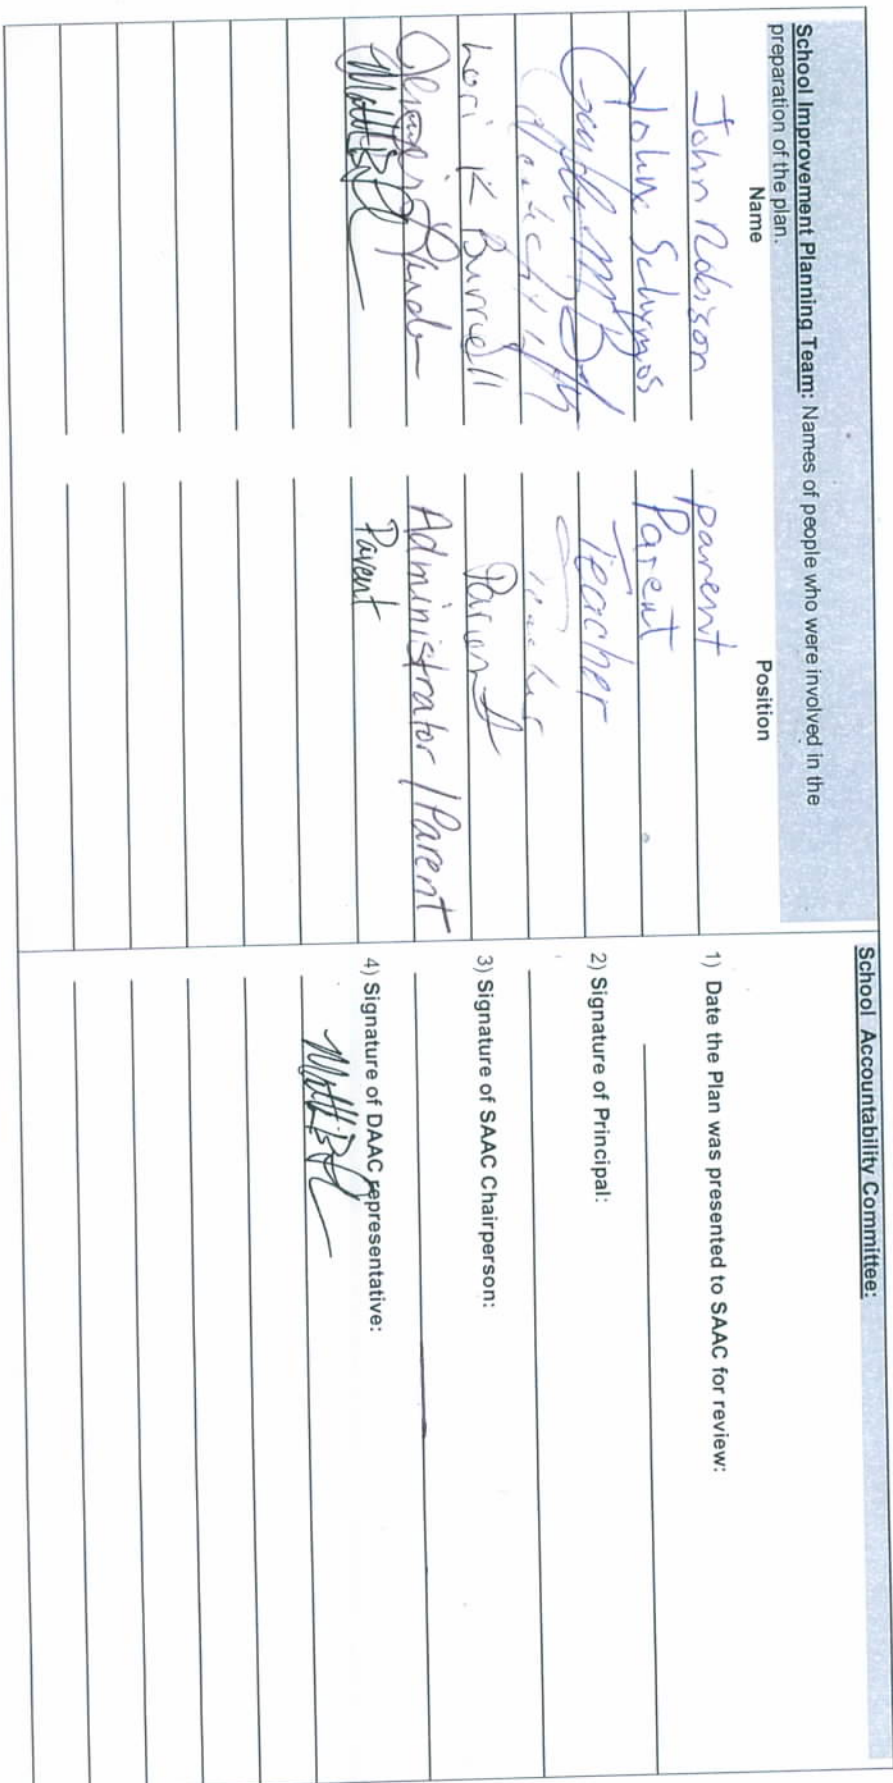 School Improvement Planning Team: Names of people who were involved in the
preparation of the plan.
Name Position
John Robison parent
John Schymos Parent
Teacher
Lori K Burrell Parent
Administrator / Parent
Parent
School Accountability Committee:
1) Date the Plan was presented to SAAC for review:
2) Signature of Principal:
3) Signature of SAAC Chairperson:
4) Signature of DAAC representative: